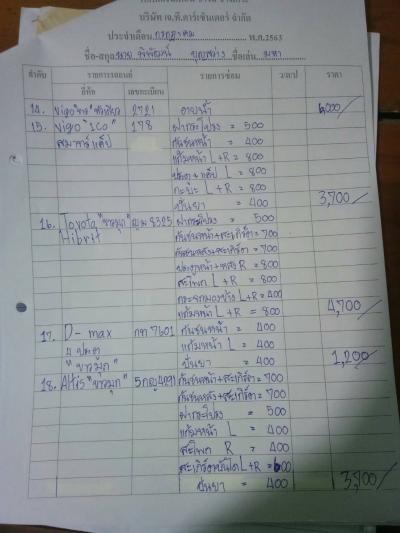 บริษัท เจ.ที.คาร์เซ็นเตอร์ จำกัด
ประจำเดือน กรกฎาคม พ.ศ.2563
ชื่อ-สกุล นาย พิพัฒน์ บุญสว่าง ชื่อเล่น
ลำดับ รายการรถยนต์ รายการซ่อม ว/ด/ป ราคา
ยี่ห้อ เลขทะเบียน
14. Vigo 2721 อาบน้ำ 6,000/
15. Vigo "1Co" 178 ฝากระโปรง = 500
สมาร์ทแค็ป กันชนหน้า = 400
แก้มหน้า L+R = 800
ประตู+แค็ป L = 800
กะบะ L+R = 800
ปั่นยา = 400 3,700/
16. Toyota "ขาวมุก" 8325 ฝากระโปรง = 500
Hibrit กันชนหน้า+สเกิร์ตา = 700
กันชนหลัง+สเกิร์ตา = 700
ประตูหน้า+หลัง R = 800
สะโพก L+R = 800
กระจกมองข้าง L+R = 400
แก้มหน้า L+R = 800 4,700/
17. D-max กท 7601 กันชนหน้า = 400
4 ประตู แก้มหน้า L = 400
"ขาวมุก" ปั่นยา = 400 1,200/
18. Altis "ขาวมุก" 5กญ4091 กันชนหน้า+สเกิร์ตา = 700
กันชนหลัง+สเกิร์ตา = 700
ฝากระโปรง = 500
แก้มหน้า L = 400
สะโพก R = 400
สเกิร์ตบันได L+R = 600
ปั่นยา = 400 3,700/